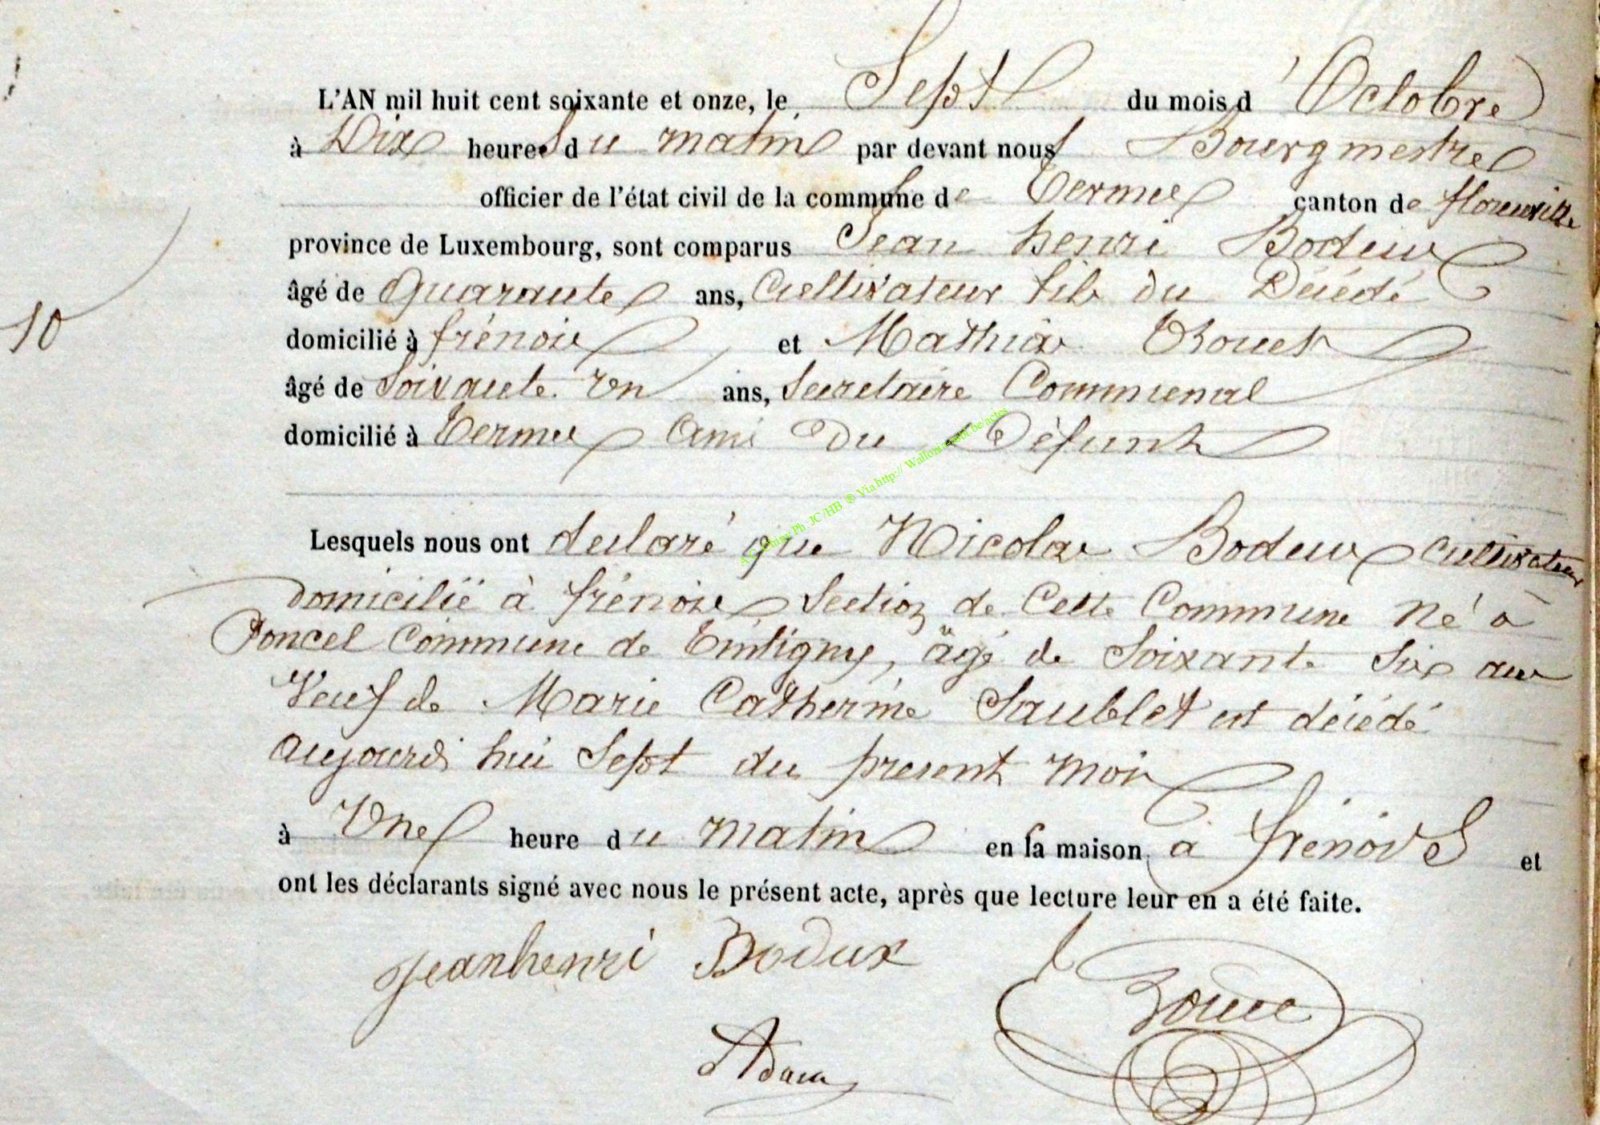 L'AN mil huit cent soixante et onze, le Sept du mois d'Octobre
à Dix heures du matin par devant nous Bourgmestre
officier de l'état civil de la commune de Termes canton de florenville
province de Luxembourg, sont comparus Jean henri Bodeux
âgé de Quarante ans, Cultivateur fils du Décédé
10
domicilié à frénois et Mathias
âgé de Soixante un ans, Secretaire Communal
domicilié à Termes Ami du Défunt
Lesquels nous ont declaré que Nicolas Bodeux Cultivateur
domicilié à frénois Section de Cette Commune Né à
Poncel Commune de Tintigny, âgé de Soixante Six ans
Veuf de Marie Catherine Saublet est décédé
aujourd hui Sept du present mois
à Une heure du matin en sa maison à frénois et
ont les déclarants signé avec nous le présent acte, après que lecture leur en a été faite.
jeanhenri Bodux
Adam